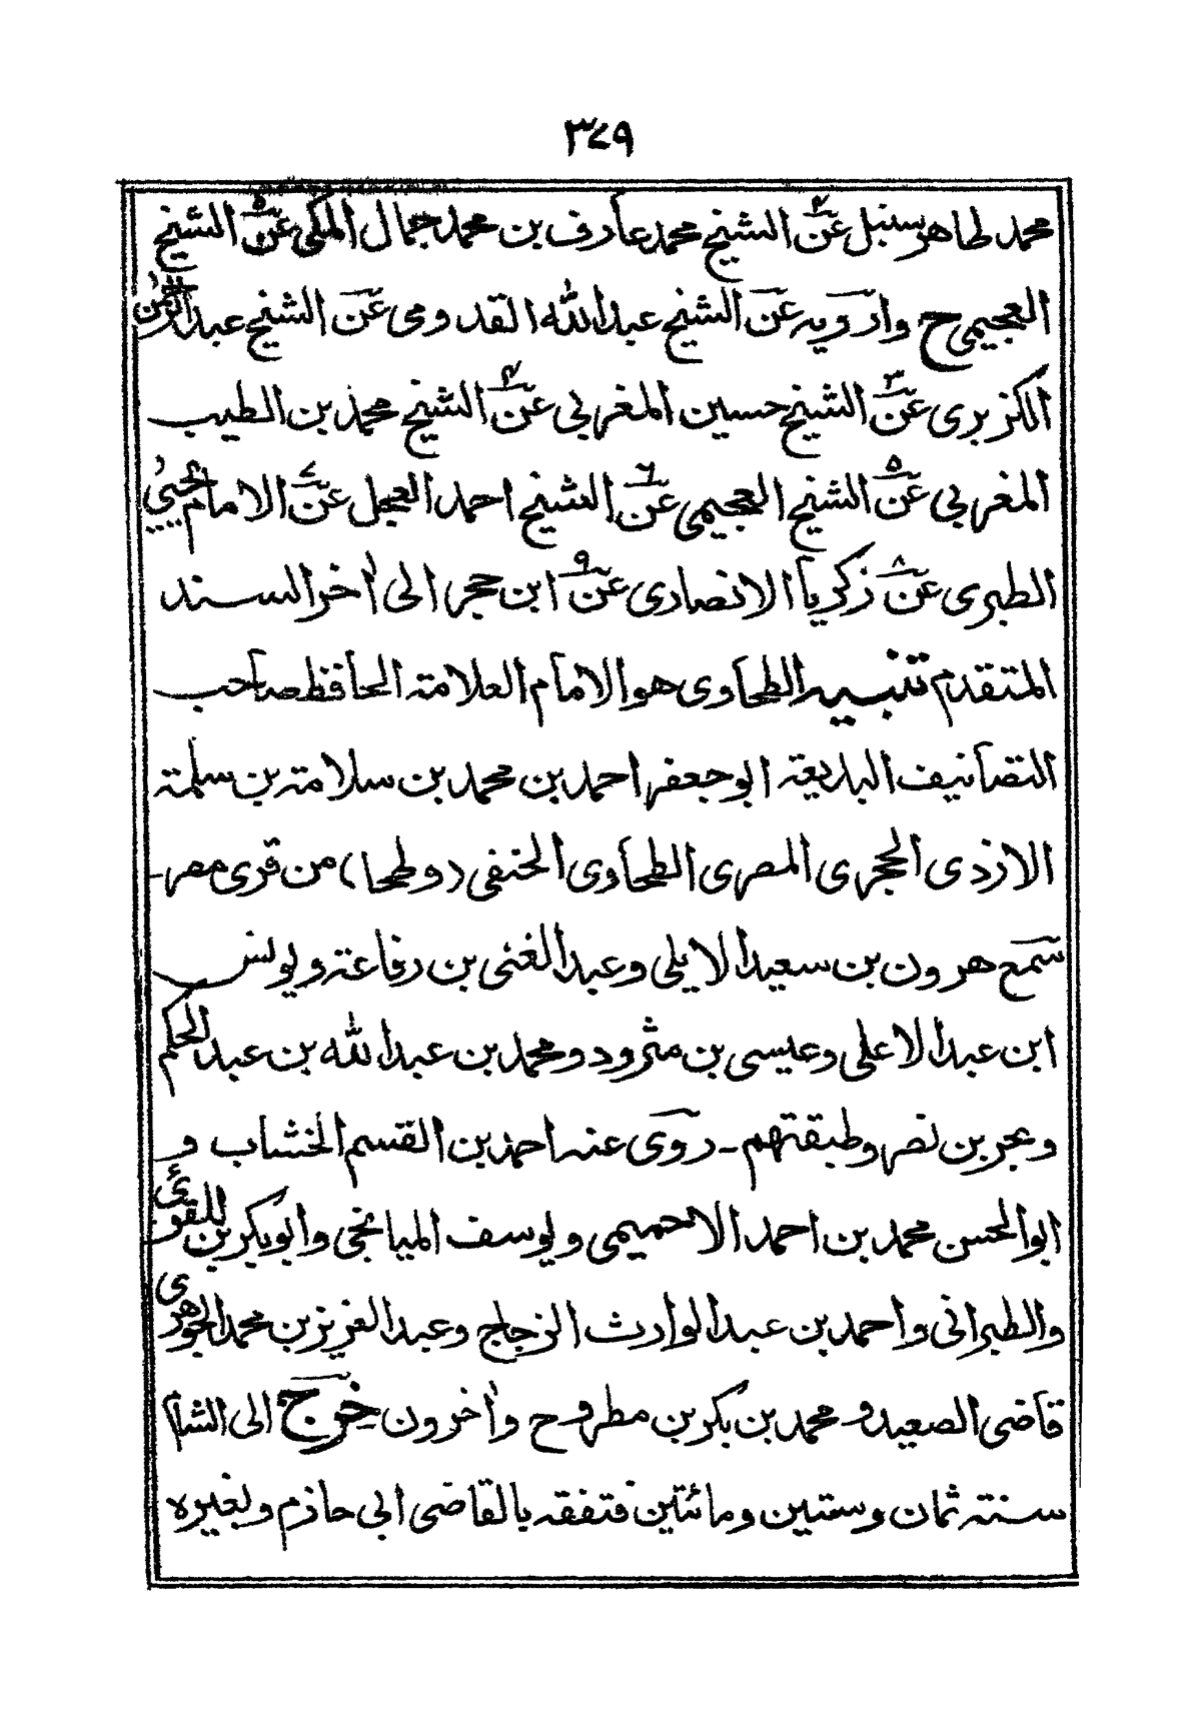 ٣٤٩
محمد طاهر سنبل عن٤ الشيخ محمد عارف بن محمد جمال المكى عن٥ الشيخ
العجيمى ح وارويه عن الشيخ عبد الله القدومى عن الشيخ عبد الرحمن
الكزبرى عن٣ الشيخ حسين المغربى عن٤ الشيخ محمد بن الطيب
المغربى عن٥ الشيخ العجيمى عن٦ الشيخ احمد العجل عن٧ الامام يحيى
الطبرى عن٨ زكريا الانصارى عن٩ ابن حجر الى اٰخر السند
المتقدم تنبيه الطحاوى هو الامام العلامة الحافظ صاحب
التصانيف البديعة ابو جعفر احمد بن محمد بن سلامة بن سلمة
الازدى الحجرى المصرى الطحاوى الحنفى (و طحا) من قرى مصر-
سمع هرون بن سعيد الايلى وعبد الغنى بن رفاعة ويونس
ابن عبد الاعلى وعيسى بن مثرود ومحمد بن عبد الله بن عبد الحكم
وبحر بن نصر وطبقتهم - روى عنه احمد بن القسم الخشاب و
ابو الحسن محمد بن احمد الاخميمى ويوسف الميانجى وابو بكر بن المقرئ
والطبرانى واحمد بن عبد الوارث الزجاج وعبد العزيز بن محمد الجوهرى
قاضى الصعيد ومحمد بن بكر بن مطروح واٰخرون خرج الى الشام
سنة ثمان وستين ومائتين فتفقه بالقاضى ابى حازم وبغيره